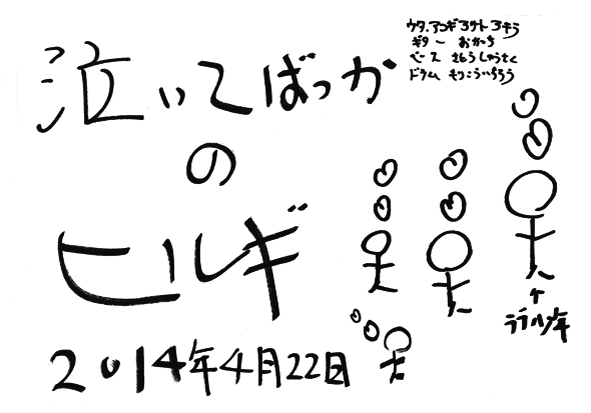 泣いてばっか
の
ヒルギ
2014年4月22日
ウタ、アコギ アサト アキラ
ギター おかち
ベース さとうしょうさく
ドラム もりこういちろう
ララハ少年